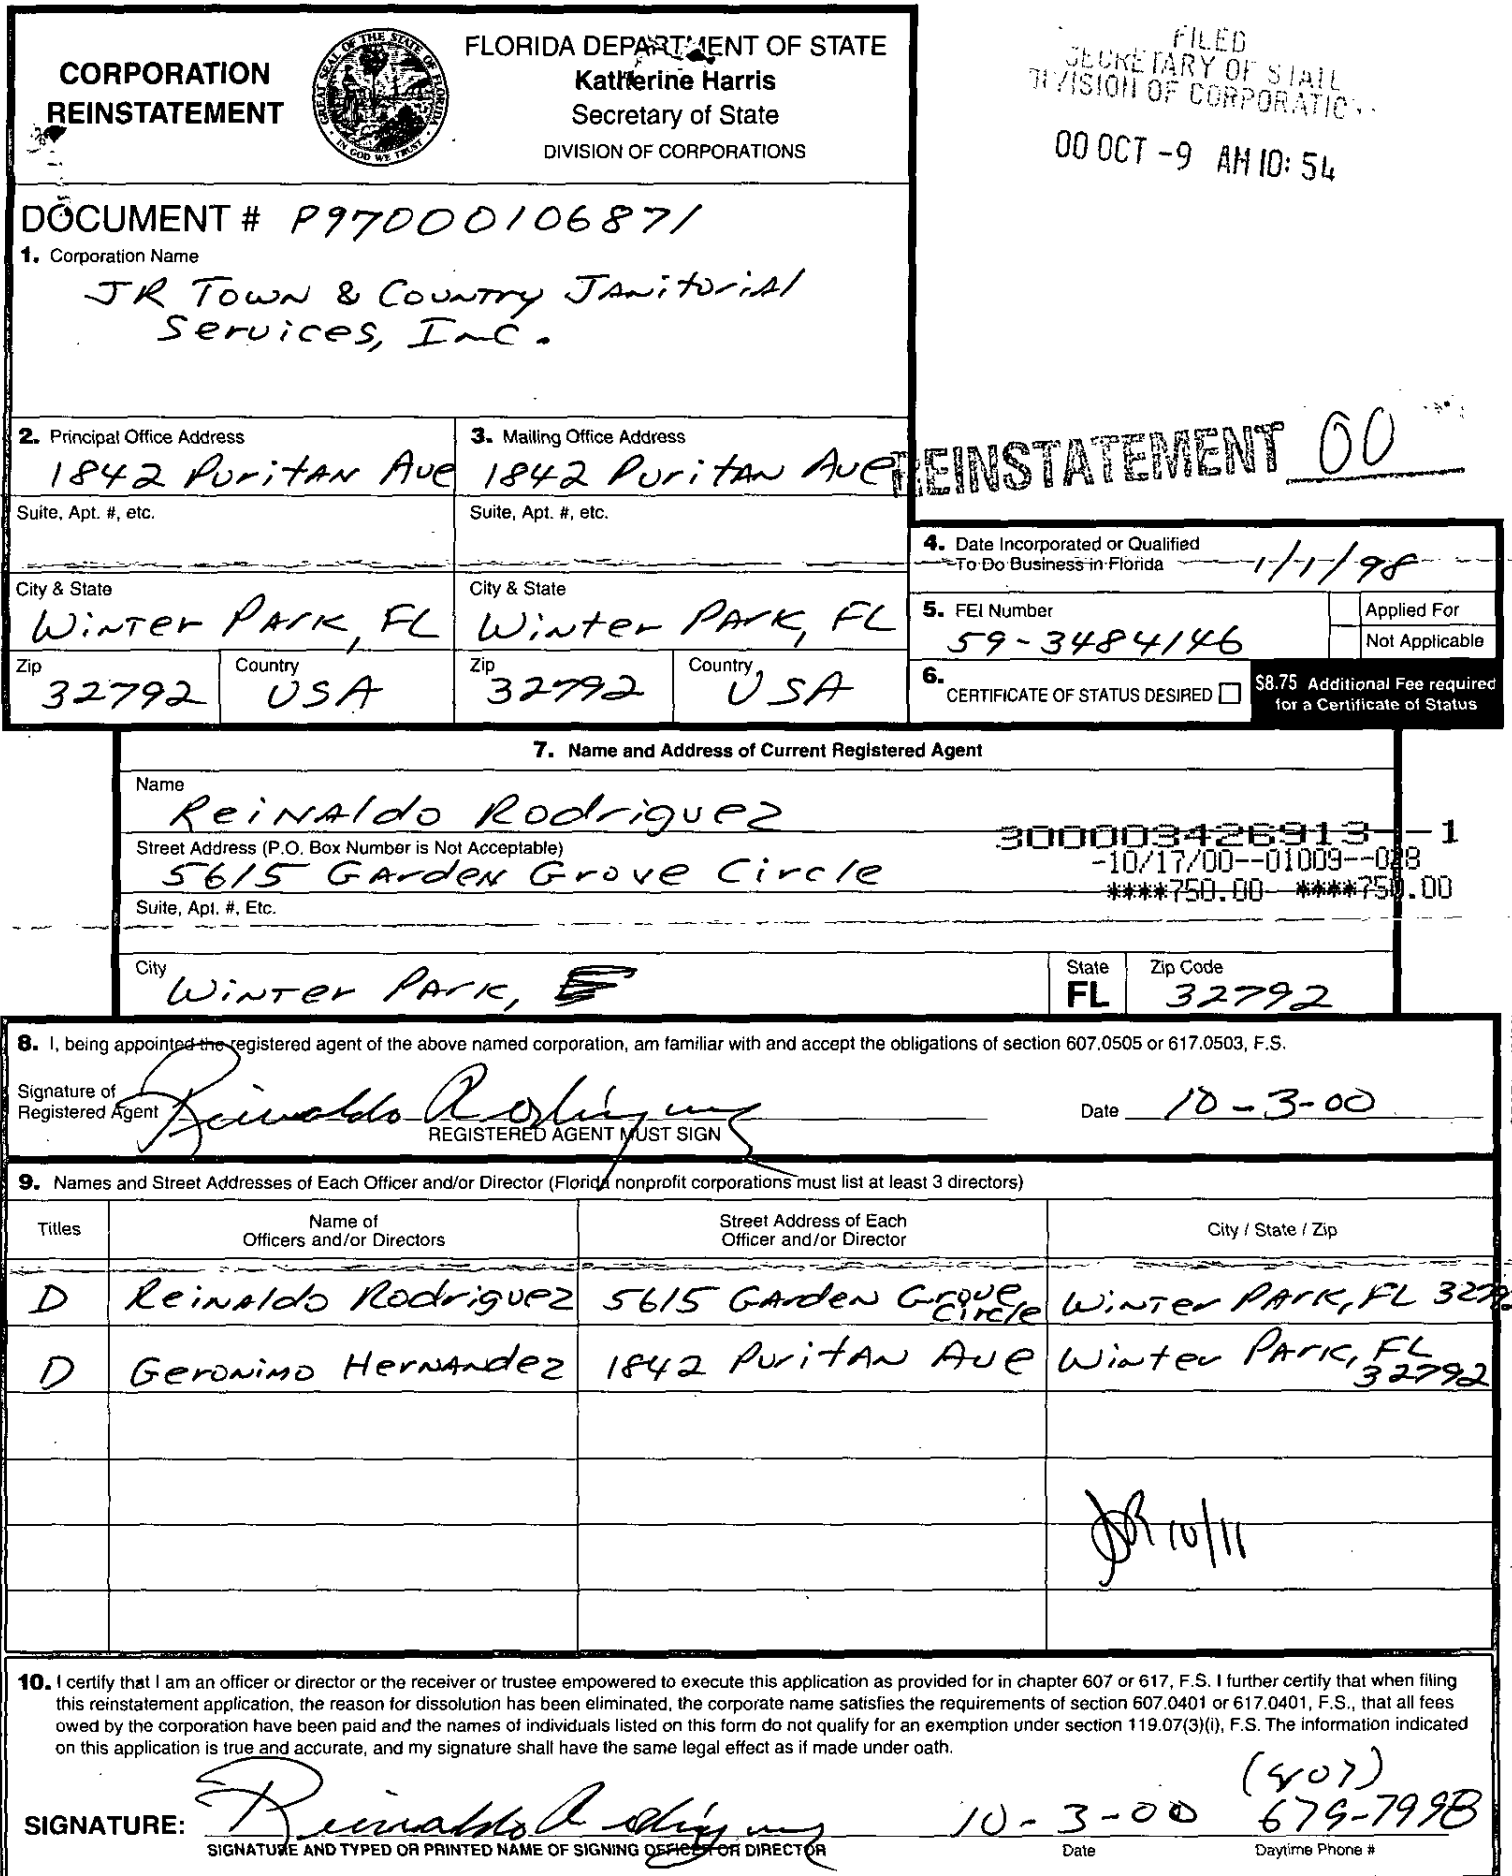 CORPORATION
REINSTATEMENT
GREAT SEAL OF THE STATE OF FLORIDA
IN GOD WE TRUST
FLORIDA DEPARTMENT OF STATE
Katherine Harris
Secretary of State
DIVISION OF CORPORATIONS
FILED
SECRETARY OF STATE
DIVISION OF CORPORATIC
00 OCT -9 AM 10: 54
DOCUMENT # P97000106871
1. Corporation Name
JR Town & Country Janitorial
Services, Inc.
2. Principal Office Address
1842 Puritan Ave
3. Mailing Office Address
1842 Puritan Ave
REINSTATEMENT 00
Suite, Apt. #, etc.
Suite, Apt. #, etc.
4. Date Incorporated or Qualified
To Do Business in Florida 1/1/98
City & State
Winter Park, FL
City & State
Winter Park, FL
5. FEI Number
59-3484146
Applied For
Not Applicable
Zip
32792
Country
USA
Zip
32792
Country
USA
6. CERTIFICATE OF STATUS DESIRED
$8.75 Additional Fee required
for a Certificate of Status
7. Name and Address of Current Registered Agent
Name
Reinaldo Rodriguez
300003426913--1
-10/17/00--01009--028
****750.00 ****750.00
Street Address (P.O. Box Number is Not Acceptable)
5615 Garden Grove Circle
Suite, Apt. #, Etc.
City
Winter Park,
State
FL
Zip Code
32792
8. I, being appointed the registered agent of the above named corporation, am familiar with and accept the obligations of section 607.0505 or 617.0503, F.S.
Signature of
Registered Agent Reinaldo Rodriguez
REGISTERED AGENT MUST SIGN
Date 10-3-00
9. Names and Street Addresses of Each Officer and/or Director (Florida nonprofit corporations must list at least 3 directors)
Titles
Name of
Officers and/or Directors
Street Address of Each
Officer and/or Director
City / State / Zip
D Reinaldo Rodriguez 5615 Garden Grove Circle Winter Park, FL 32792
D Geronimo Hernandez 1842 Puritan Ave Winter Park, FL 32792
10/11
10. I certify that I am an officer or director or the receiver or trustee empowered to execute this application as provided for in chapter 607 or 617, F.S. I further certify that when filing
this reinstatement application, the reason for dissolution has been eliminated, the corporate name satisfies the requirements of section 607.0401 or 617.0401, F.S., that all fees
owed by the corporation have been paid and the names of individuals listed on this form do not qualify for an exemption under section 119.07(3)(i), F.S. The information indicated
on this application is true and accurate, and my signature shall have the same legal effect as if made under oath.
SIGNATURE: Reinaldo Rodriguez
SIGNATURE AND TYPED OR PRINTED NAME OF SIGNING OFFICER OR DIRECTOR
10-3-00
Date
(407)
679-7998
Daytime Phone #